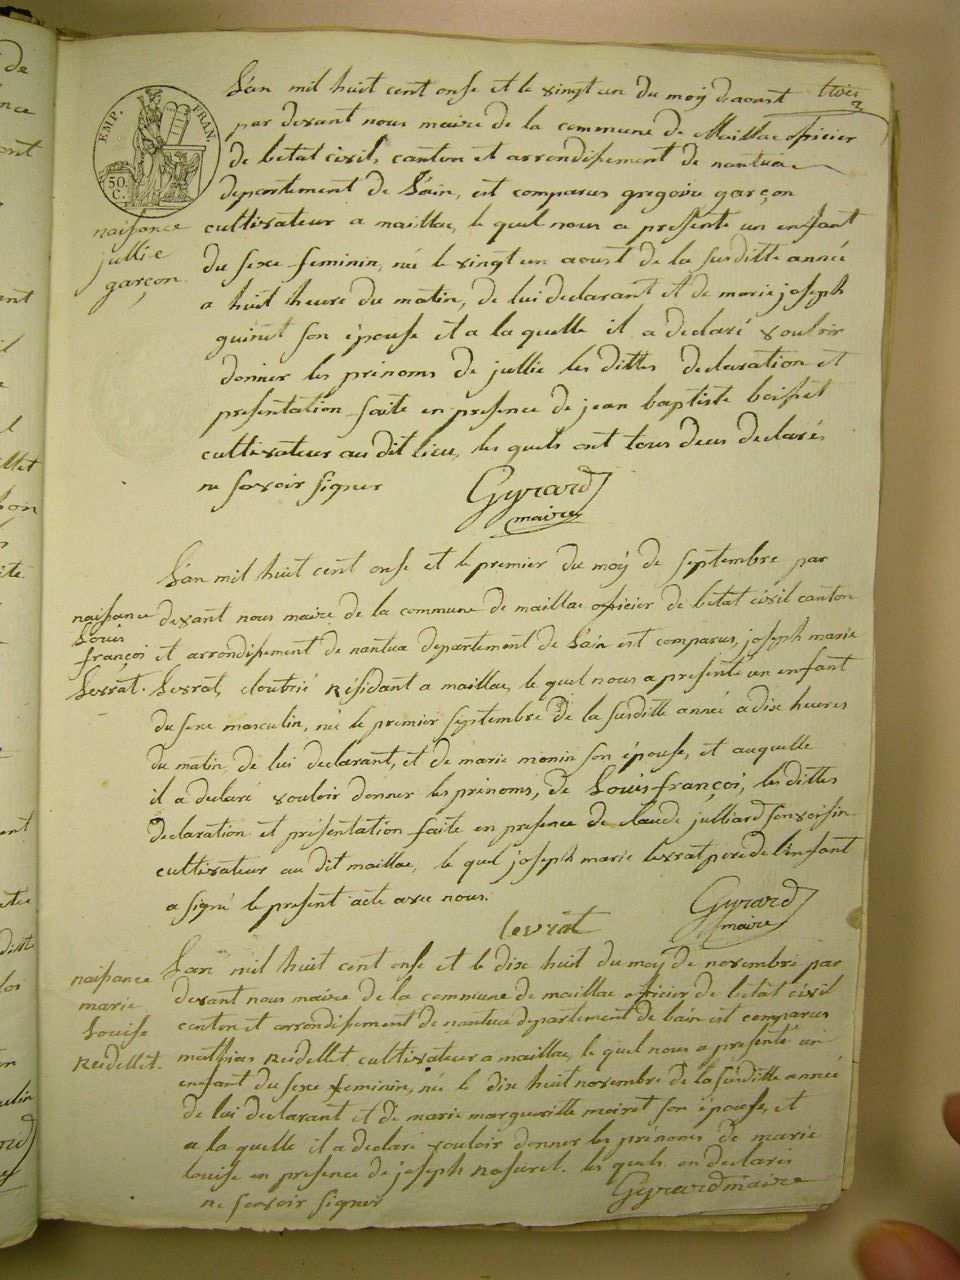 trois
3
EMP. FRAN.
50. C.
L'an mil huit cent onse et le vingt un du moÿ daoust
par devant nous maire de la commune de Maillac officier
de letat civil, canton et arrondisement de nantua
departement de Lain, est comparus gregoire garçon
cultivateur a maillac, le quel nous a presenté un enfant
du sexe feminin, né le vingt un aoust de la sus ditte année
a huit heure du matin, de lui declarant et de marie joseph
son épouse et a la quelle il a declaré vouloir
donner les prénoms de jullie les dittes declaration et
presentation faite en presence de jean baptiste
cultivateur au dit lieu, les quels ont tous deus declarés
ne savoir signer
Gyrard
maire
naisance
jullie
garçon
L'an mil huit cent onse et le premier du moÿ de septembre par
devant nous maire de la commune de maillac officier de letat civil canton
et arrondisement de nantua departement de Lain est comparus, joseph marie
Levrat, cloutrié Résidant a maillac, le quel nous a presenté un enfant
du sexe masculin, né le premier septembre de la susditte année a dix heures
du matin, de lui declarant, et de marie monin son épouse, et auquelle
il a declaré vouloir donner les prénoms, de Louis françoi, les dittes
declaration et présentation faite en presence de claude julliard son voisin
cultivateur au dit maillac, le quel joseph marie levrat pere de l'enfant
a signé le present acte avec nous.
levrat
Gyrard
maire
naisance
Louis
françoi
Levrat.
L'an mil huit cent onse et le dix huit du moÿ de novembre par
devant nous maire de la commune de maillac officier de letat civil
canton et arrondisement de nantua departement de lain est comparus
mathias Reidellet cultivateur a maillac, le quel nous a presenté un
enfant du sexe feminin, né le dix huit novembre de la susditte année
de lui declarant et de marie margueritte moiret son épouse, et
a la quelle il a declaré vouloir donner les prénoms de marie
louise en presence de joseph les quels on declarés
ne savoir signer
Gyrard maire
naisance
marie
Louise
Reidellet.